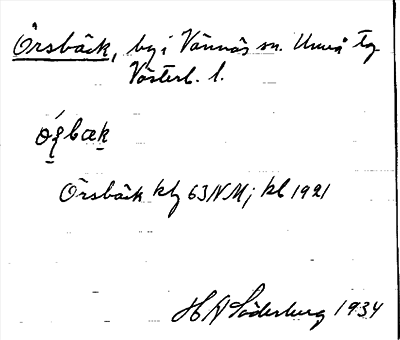 Örsbäck, by i Vännäs sn. Umeå tg
Västerb. l.
Örsbäck kbg 63NM; kl 1921
H A Söderberg 1934